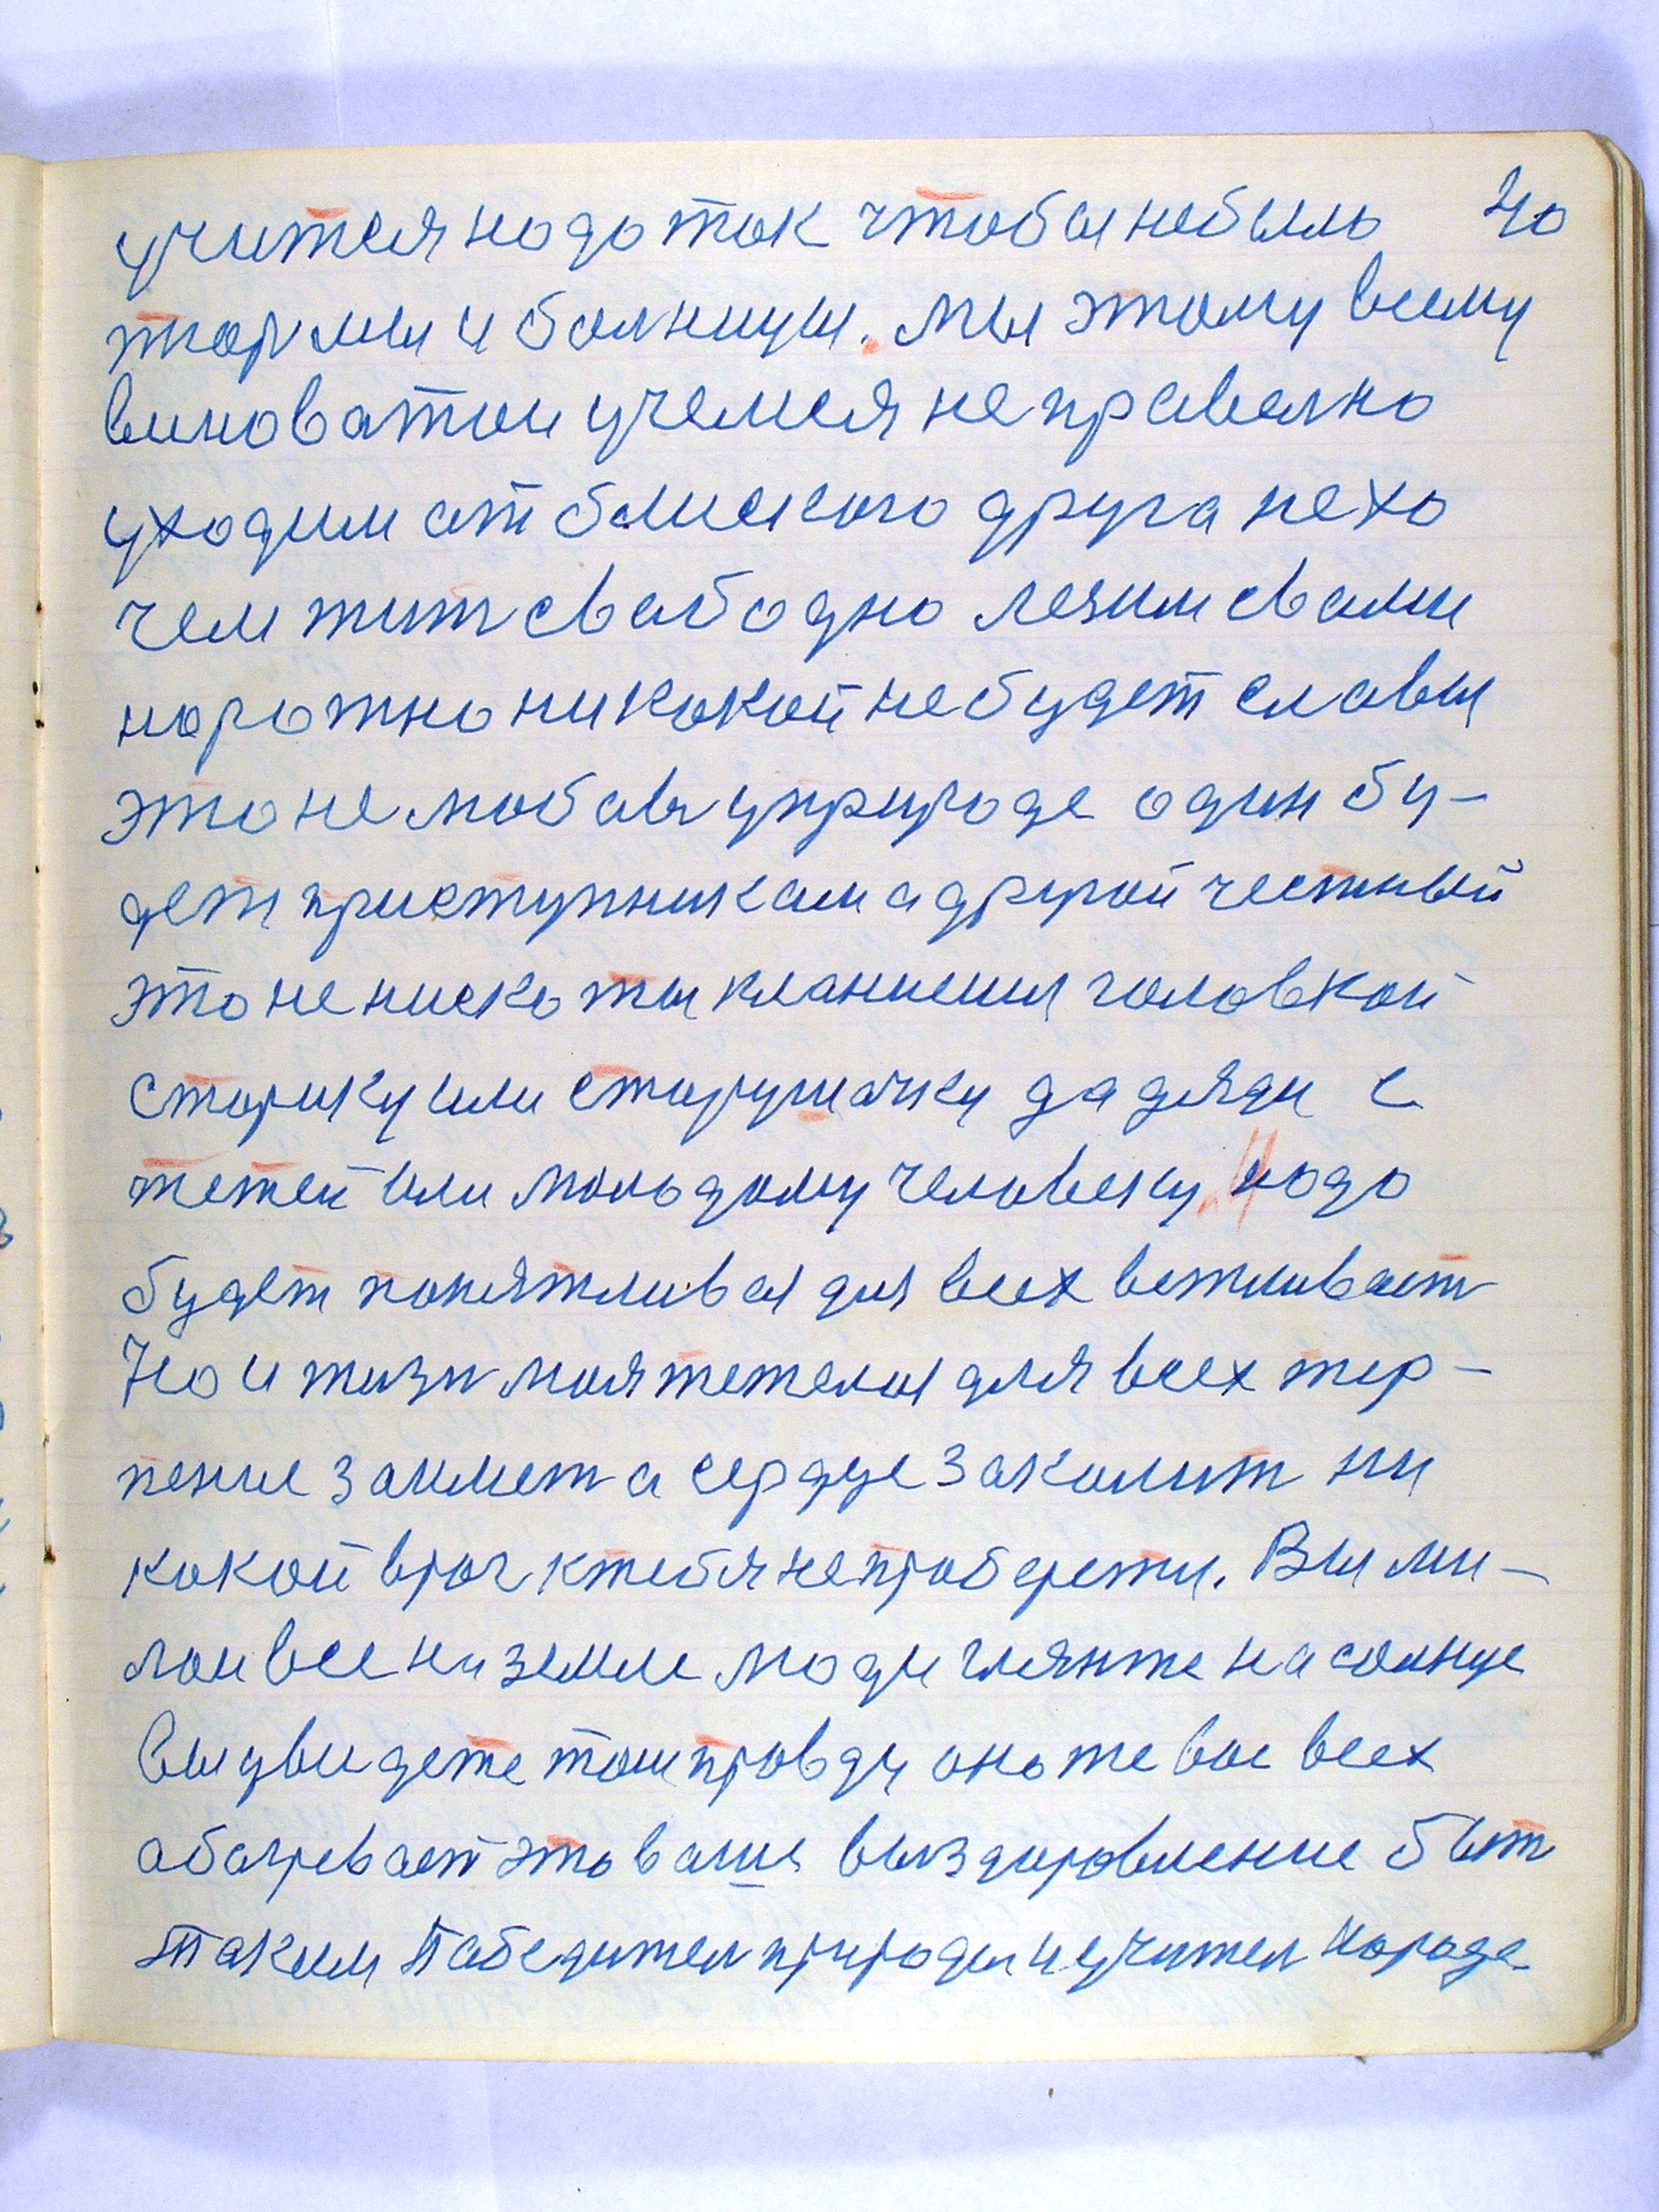 40
учится надо так чтобы небыло
тюрмы и болницы. мы этому всему
виноватои учемся не правелно
уходим от блиского друга не хо
чем жит свабодно лезим сваими
нарожно никокой не будет славы
это не любовь уприроде один бу-
дет приступникам а другой честный
это не ниско ты кланишся головкой
старику или старушачку да дяди с
тетей или молодому человеку. Надо
будет понятливоя для всех вежливаст
Но и жизн моя тежелоя для всех тер-
пение займет а сердце закалит ни
какой врач ктебя непроберети. Вы ми-
лои все на земле люди гляньте на солнце
Вы увидете тои правду оно же вас всех
абагревает это ваше выздоровление быт
Таким Пабедител природы и учител народа